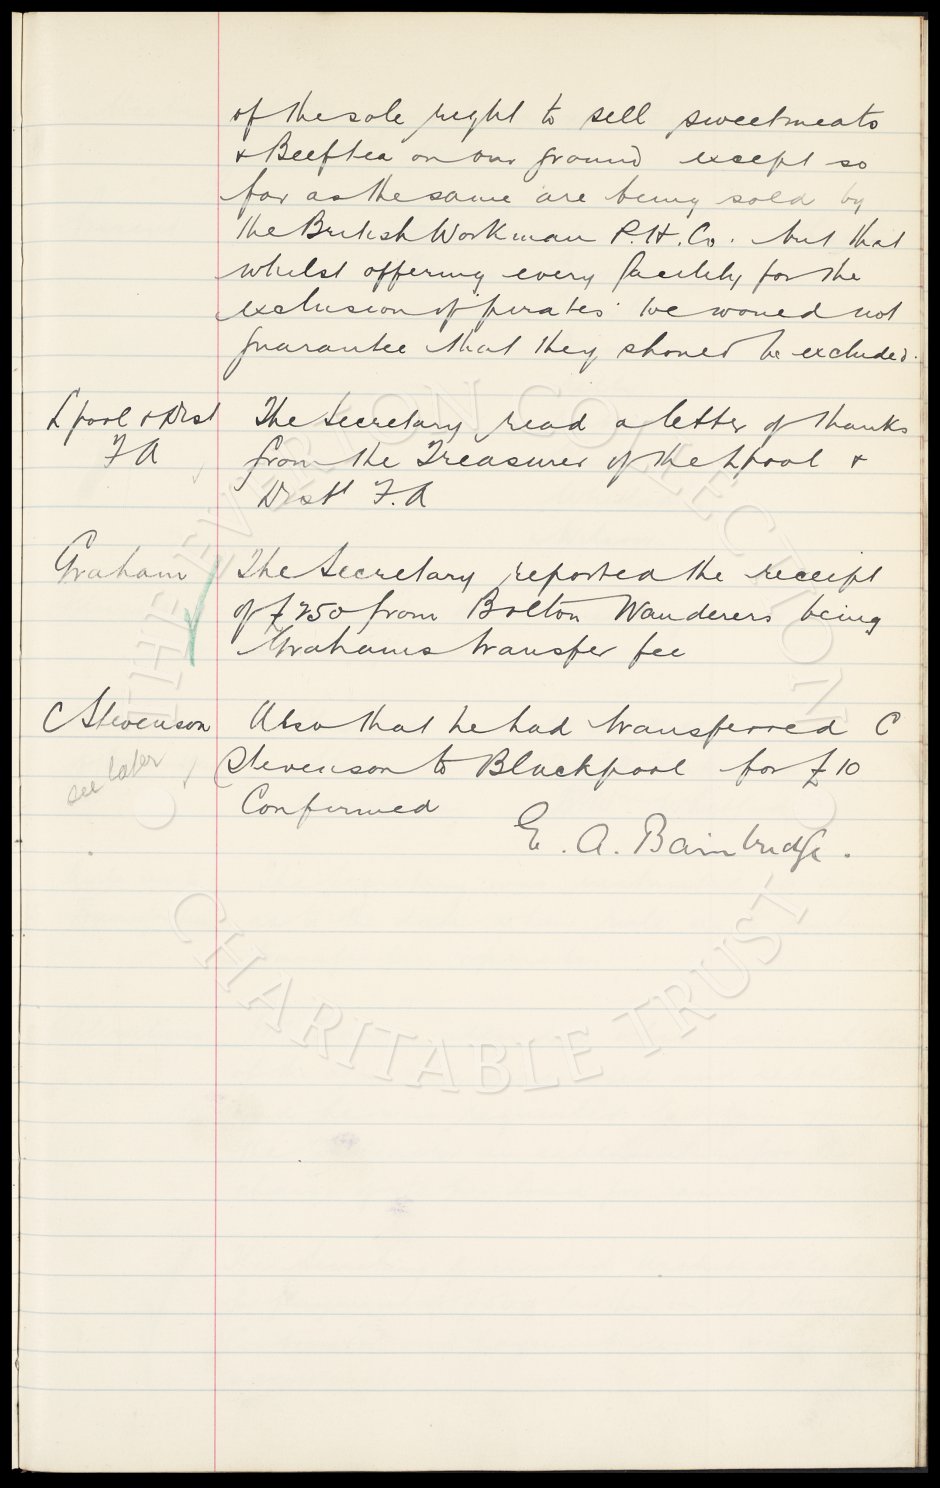 of the sole right to sell sweetmeats
& Beeftea on our ground except so
far as the same are being sold by
the British Workman P.H. Co. but that
whilst offering every facility for the
exclusion of pirates we would not
guarantee that they should be excluded.
L'pool & Dist
F A
The Secretary read a letter of thanks
from the Treasurer of the Lpool &
Distt F.A
Graham
The Secretary reported the receipt
of £250 from Bolton Wanderers being
Grahams transfer fee
C Stevenson
see later
Also that he had transferred C
Stevenson to Blackpool for £10
Confirmed
E. A. Bainbridge.
THE EVERTON COLLECTION
CHARITABLE TRUST